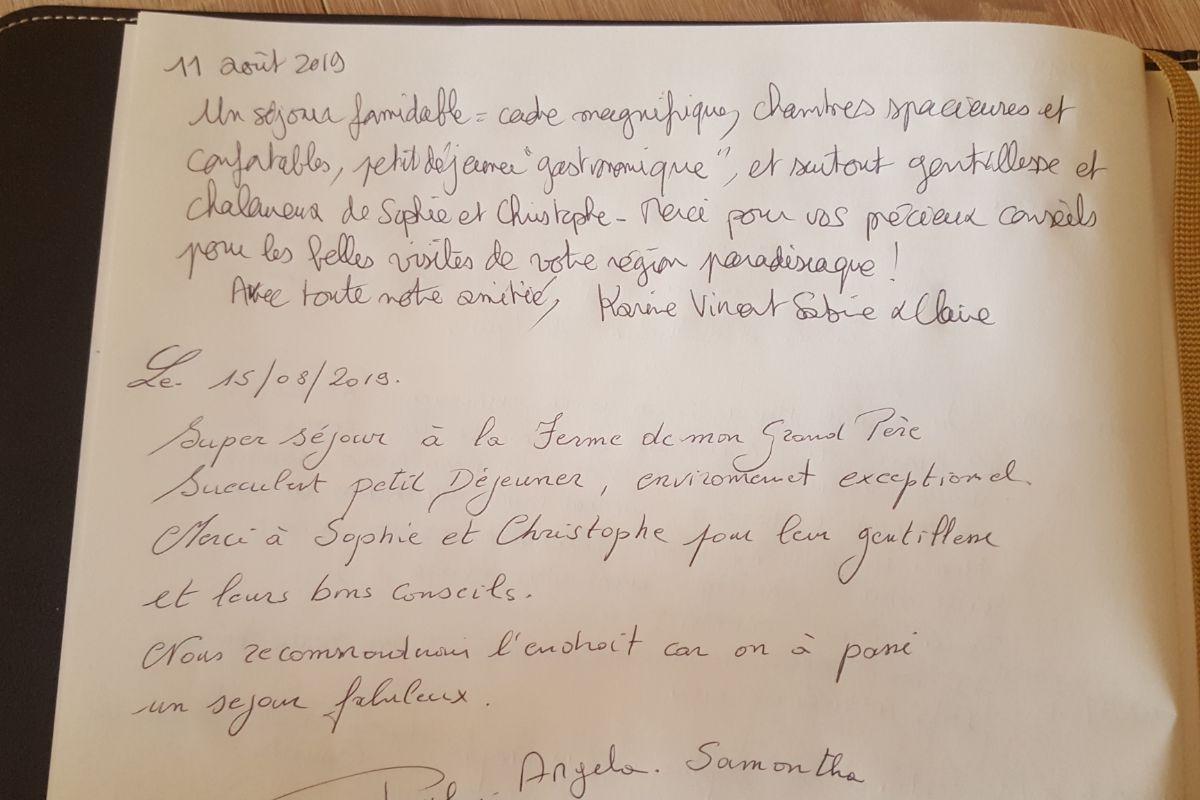 11 août 2019
Un séjour formidable = cadre magnifique, chambres spacieuses et
confortables, petit déjeuner "gastronomique", et surtout gentillesse et
chaleureux de Sophie et Christophe - Merci pour vos précieux conseils
pour les belles visites de votre région paradisiaque !
Avec toute notre amitié, Karine Vincent Sabine & Claire
Le 15/08/2019.
Super séjour à la Ferme de mon Grand Père
Succulent petit Déjeuner, enviromemet exceptionel.
Merci à Sophie et Christophe pour leur gentillesse
et leurs bons conseils.
Nous recommandons l'endroit car on à passé
un sejour fabuleux.
Angela. Samantha